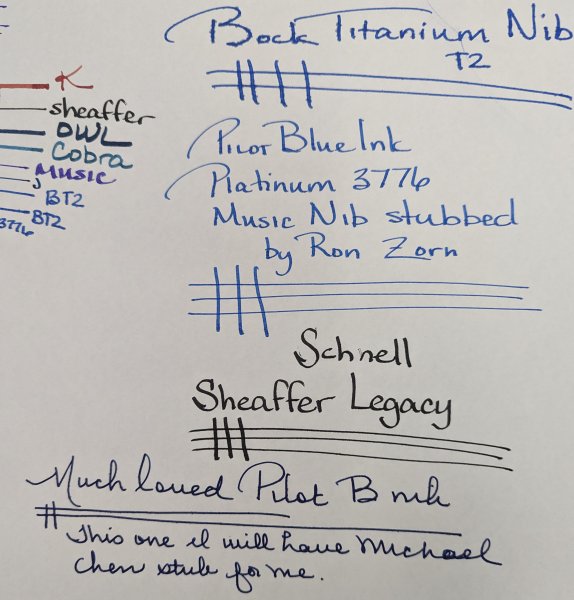 K
Sheaffer
OWL
Cobra
Music
J
BT2
BT2
3776
Bock Titanium Nib
T2
Pilot Blue Ink
Platinum 3776
Music Nib stubbed
by Ron Zorn
Schnell
Sheaffer Legacy
Much loved Pilot B nib
This one I will have Michael
Chen stub for me.